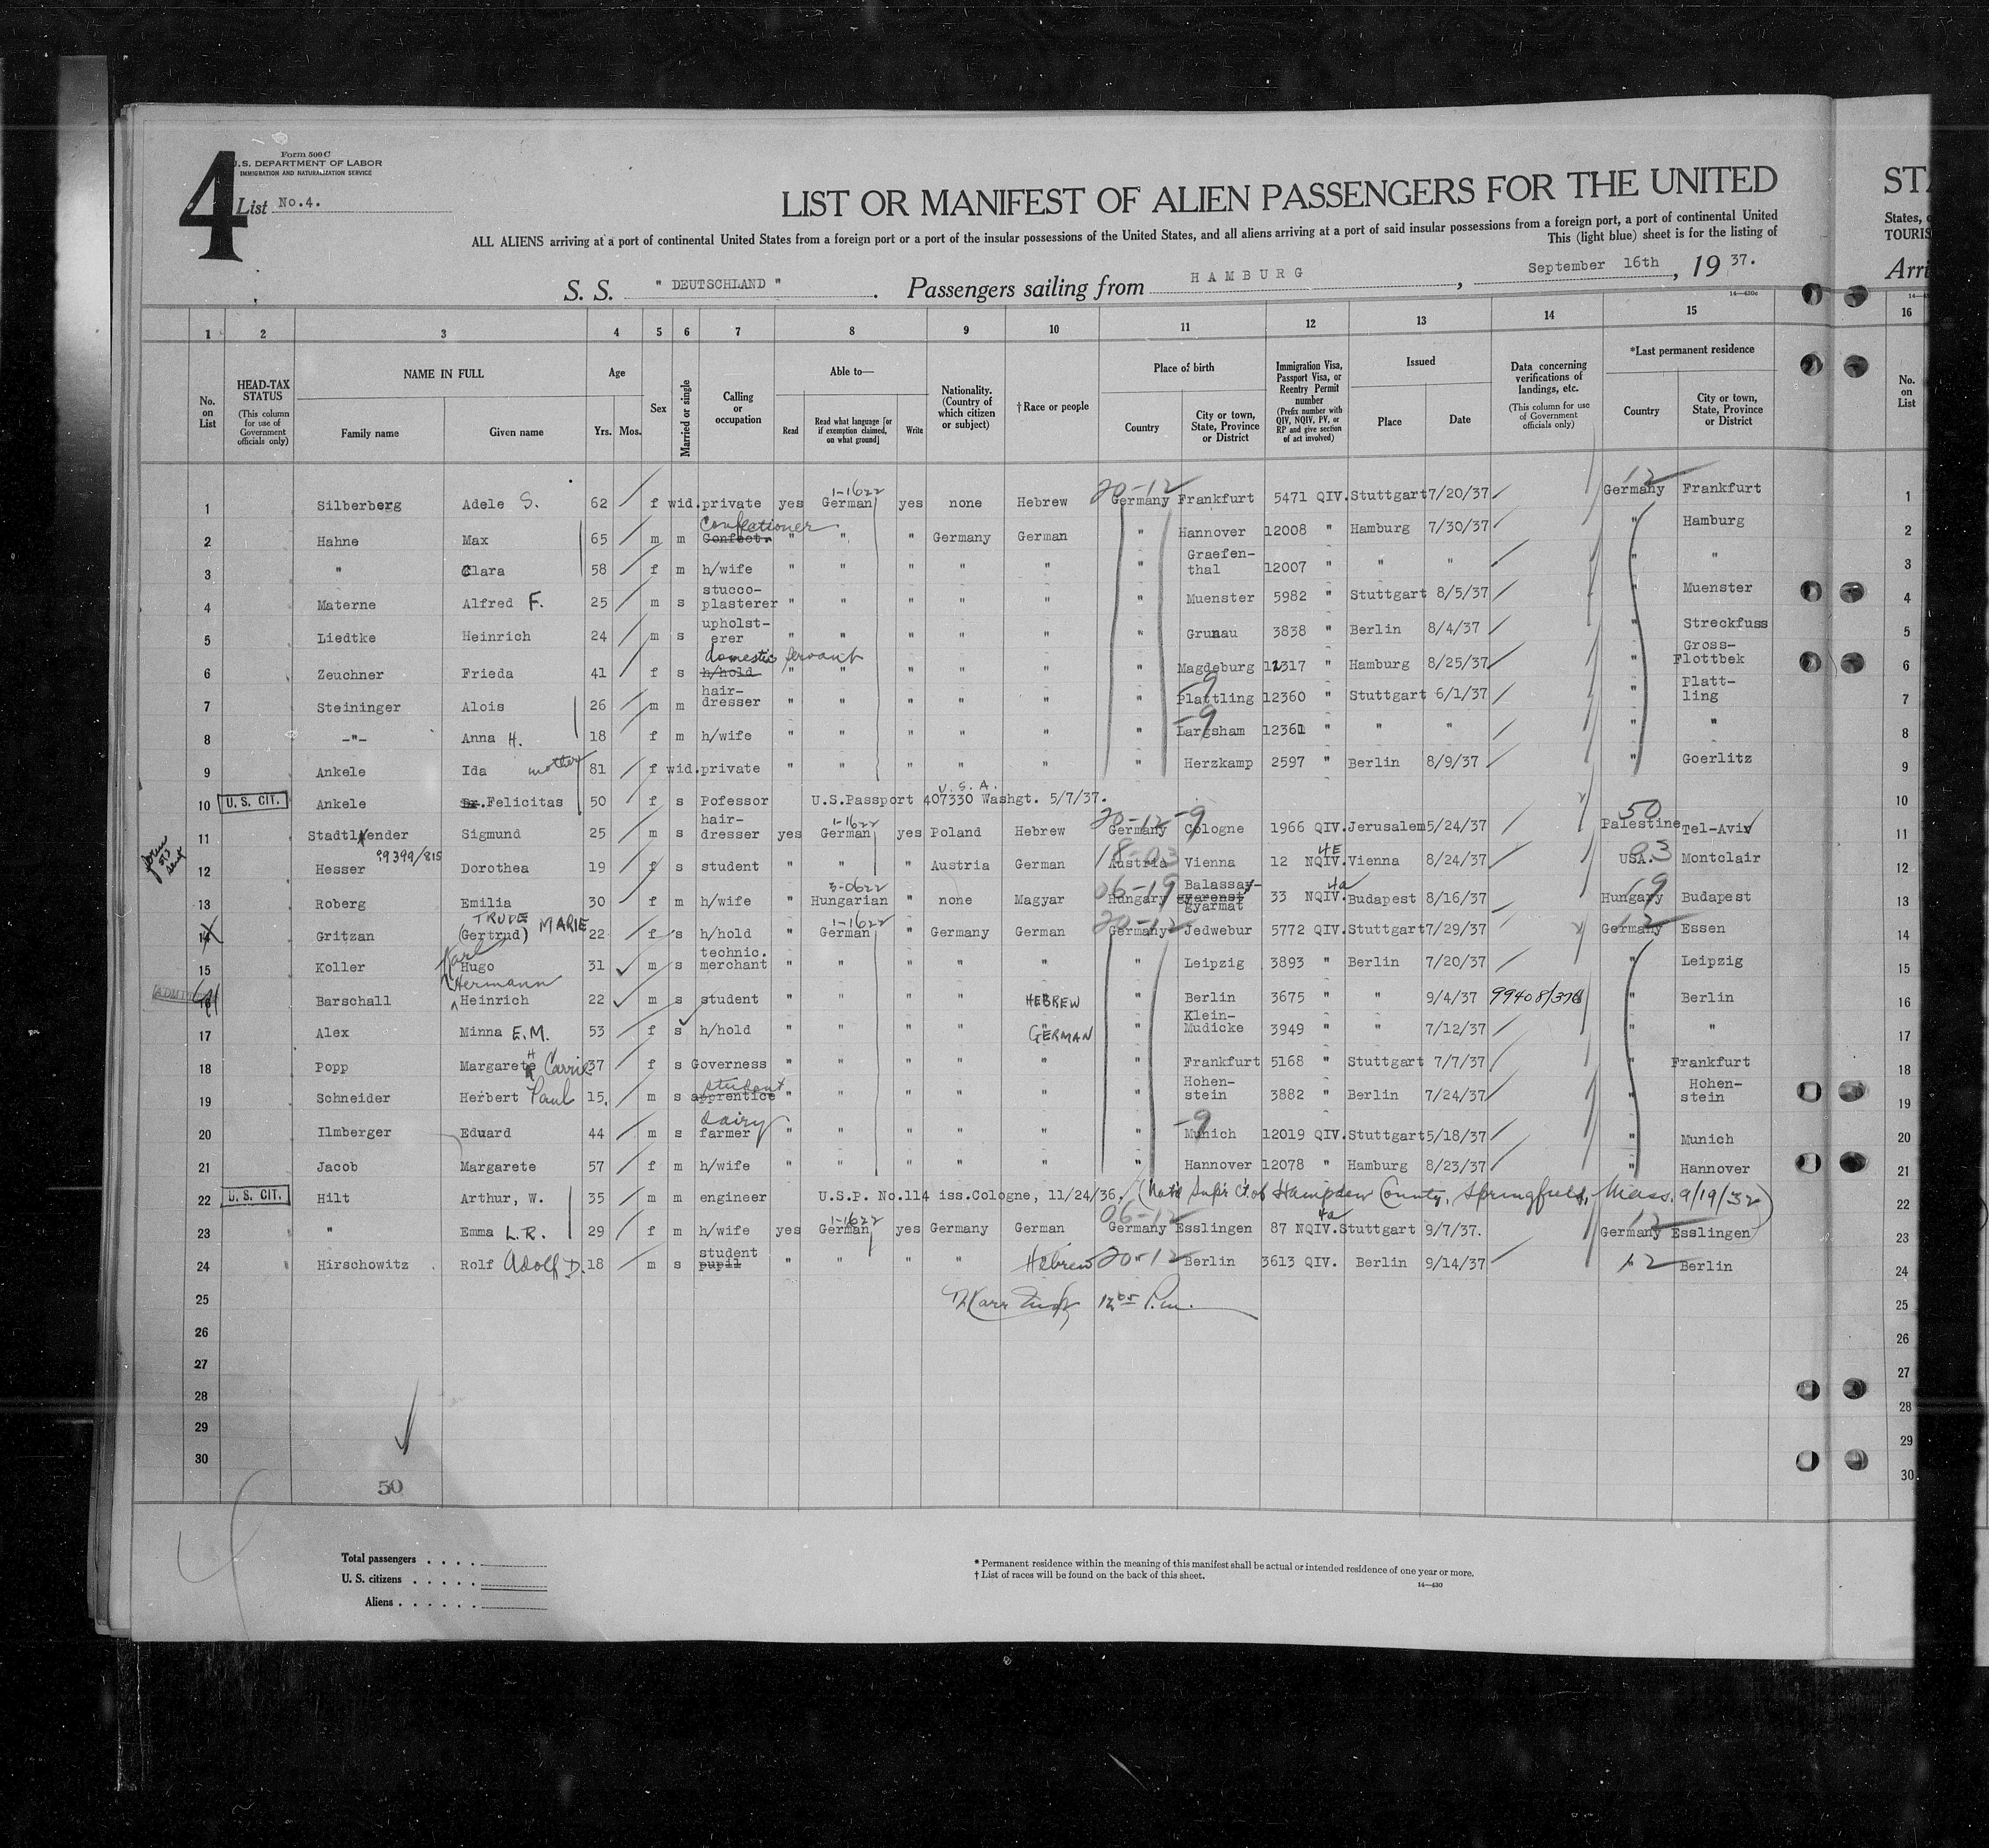 4
Form 500 C
U.S. DEPARTMENT OF LABOR
IMMIGRATION AND NATURALIZATION SERVICE
List No.4.
LIST OR MANIFEST OF ALIEN PASSENGERS FOR THE UNITED
ALL ALIENS arriving at a port of continental United States from a foreign port or a port of the insular possessions of the United States, and all aliens arriving at a port of said insular possessions from a foreign port, a port of continental United
This (light blue) sheet is for the listing of
S. S. " DEUTSCHLAND " . Passengers sailing from HAMBURG , September 16th , 19 37.
14—430c
1 2 3 4 5 6 7 8 9 10 11 12 13 14 15
No. on List
HEAD-TAX STATUS (This column for use of Government officials only)
NAME IN FULL Family name Given name
Age Yrs. Mos.
Sex
Married or single
Calling or occupation
Able to— Read Read what language [or if exemption claimed, on what ground] Write
Nationality. (Country of which citizen or subject)
† Race or people
Place of birth Country City or town, State, Province or District
Immigration Visa, Passport Visa, or Reentry Permit number (Prefix number with QIV, NQIV, PV, or RP and give section of act involved)
Issued Place Date
Data concerning verifications of landings, etc. (This column for use of Government officials only)
*Last permanent residence Country City or town, State, Province or District
1 Silberberg Adele S. 62 f wid. private yes German 1-1622 yes none Hebrew 20-12 Germany Frankfurt 5471 QIV. Stuttgart 7/20/37 12 Germany Frankfurt
2 Hahne Max 65 m m Confect. confectioner " " " Germany German " Hannover 12008 " Hamburg 7/30/37 " Hamburg
3 " Clara 58 f m h/wife " " " " " " Graefen-thal 12007 " " " " "
4 Materne Alfred F. 25 m s stucco-plasterer " " " " " " Muenster 5982 " Stuttgart 8/5/37 " Muenster
5 Liedtke Heinrich 24 m s upholst-erer " " " " " " Grunau 3838 " Berlin 8/4/37 " Streckfuss
6 Zeuchner Frieda 41 f s h/hold domestic servant " " " " " " Magdeburg 12317 " Hamburg 8/25/37 " Gross-Flottbek
7 Steininger Alois 26 m m hair-dresser " " " " " " -9 Plattling 12360 " Stuttgart 6/1/37 " Platt-ling
8 -"- Anna H. 18 f m h/wife " " " " " " -9 Largsham 12361 " " " " "
9 Ankele Ida mother 81 f wid. private " " " " " " Herzkamp 2597 " Berlin 8/9/37 " Goerlitz
10 U. S. CIT. Ankele Dr. Felicitas 50 f s Pofessor U.S.Passport 407330 Washgt. 5/7/37. U.S.A.
11 Stadtlaender Sigmund 25 m s hair-dresser yes German 1-1622 yes Poland Hebrew 20-12-9 Germany Cologne 1966 QIV. Jerusalem 5/24/37 50 Palestine Tel-Aviv
12 Hesser 99399/815 Dorothea 19 f s student " " " Austria German 18-03 Austria Vienna 12 NQIV. 4E Vienna 8/24/37 USA. 03 Montclair
13 Roberg Emilia 30 f m h/wife " Hungarian 3-0622 " none Magyar 06-19 Hungary Balassay-gyarmat 33 NQIV. 4a Budapest 8/16/37 19 Hungary Budapest
14 Gritzan TRUDE (Gertrud) MARIE 22 f s h/hold " German 1-1622 " Germany German 20-12 Germany Jedwebur 5772 QIV. Stuttgart 7/29/37 12 Germany Essen
15 Koller Karl Hugo 31 m s technic. merchant " " " " " " Leipzig 3893 " Berlin 7/20/37 " Leipzig
ADMITTED 16 Barschall Hermann Heinrich 22 m s student " " " " HEBREW " Berlin 3675 " " 9/4/37 99408/376 " Berlin
17 Alex Minna E.M. 53 f s h/hold " " " " GERMAN " Klein-Mudicke 3949 " " 7/12/37 " "
18 Popp Margarete H Carrie 37 f s Governess " " " " " " Frankfurt 5168 " Stuttgart 7/7/37 " Frankfurt
19 Schneider Herbert Paul 15. m s apprentice student " " " " " " Hohen-stein 3882 " Berlin 7/24/37 " Hohen-stein
20 Ilmberger Eduard 44 m s dairy farmer " " " " " " -9 Munich 12019 QIV. Stuttgart 5/18/37 " Munich
21 Jacob Margarete 57 f m h/wife " " " " " " Hannover 12078 " Hamburg 8/23/37 " Hannover
22 U. S. CIT. Hilt Arthur, W. 35 m m engineer U.S.P. No.114 iss.Cologne, 11/24/36. (Nat'd Sup'r Ct. of Hampden County, Springfield, Mass. 9/19/32)
23 " Emma L.R. 29 f m h/wife yes German 1-1622 yes Germany German 06-12 Germany Esslingen 87 NQIV. 4a Stuttgart 9/7/37. 12 Germany Esslingen
24 Hirschowitz Rolf Adolf D. 18 m s pupil student " " " " Hebrew 20-12 Berlin 3613 QIV. Berlin 9/14/37 " 12 Berlin
25 P.m.
26
27
28
29
30
50
Total passengers
U. S. citizens
Aliens
* Permanent residence within the meaning of this manifest shall be actual or intended residence of one year or more.
† List of races will be found on the back of this sheet.
14—430
STA
States, o
TOURIS
Arri
16
No. on List
1
2
3
4
5
6
7
8
9
10
11
12
13
14
15
16
17
18
19
20
21
22
23
24
25
26
27
28
29
30